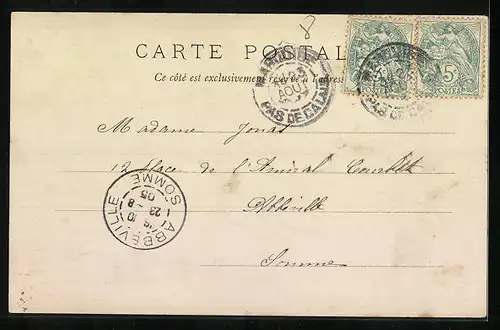 8
CARTE POSTALE
Ce côté est exclusivement réservé à l'adresse
PAS DE CALAIS
AOUT
5c
POSTES
POSTES
Madame Jonas
12 place de l'Amiral Courbet
Abbeville
Somme
ABBEVILLE
SOMME
23 - 8
05